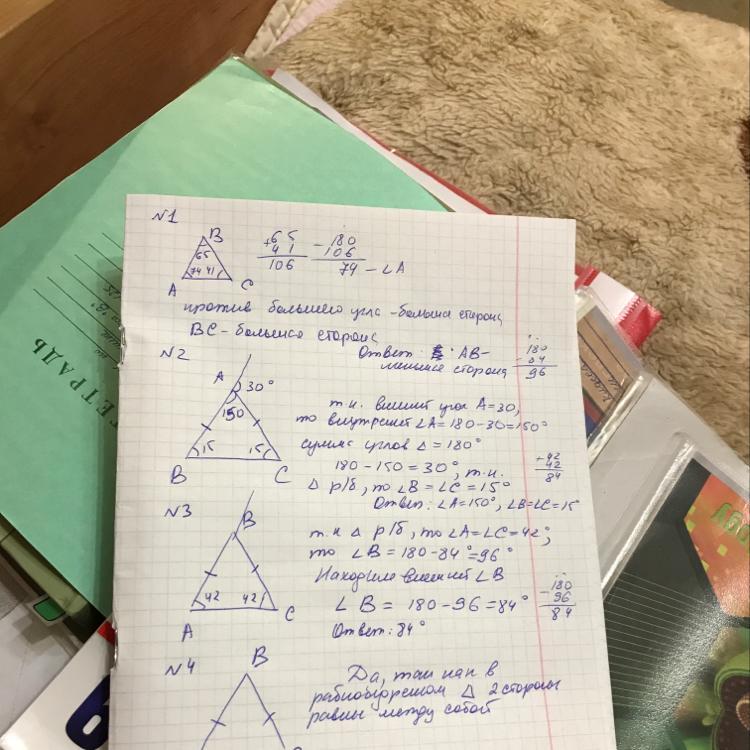 N1
B
65
74 41
A C
+65
41
106
-180
106
74 - ∠A
против большего угла - большая сторона
BC - большая сторона
Ответ: AB -
меньшая сторона
N2
180
- 84
96
A 30°
150
15 15
B C
т.к. внешний угол A=30,
то внутренний ∠A=180-30=150°
сумма углов Δ = 180°
180-150=30°, т.к.
Δ р/б, то ∠B=∠C=15°
Ответ: ∠A=150°, ∠B=∠C=15
+42
42
84
N3
B
42 42
A C
т.к Δ р/б, то ∠A=∠C=42°,
то ∠B=180-84°=96°
Находим внешний ∠B
∠B = 180-96=84°
Ответ: 84°
-180
96
84
N4
B
Да, так как в
равнобедренном Δ 2 стороны
равны между собой
ТЕТРАДЬ